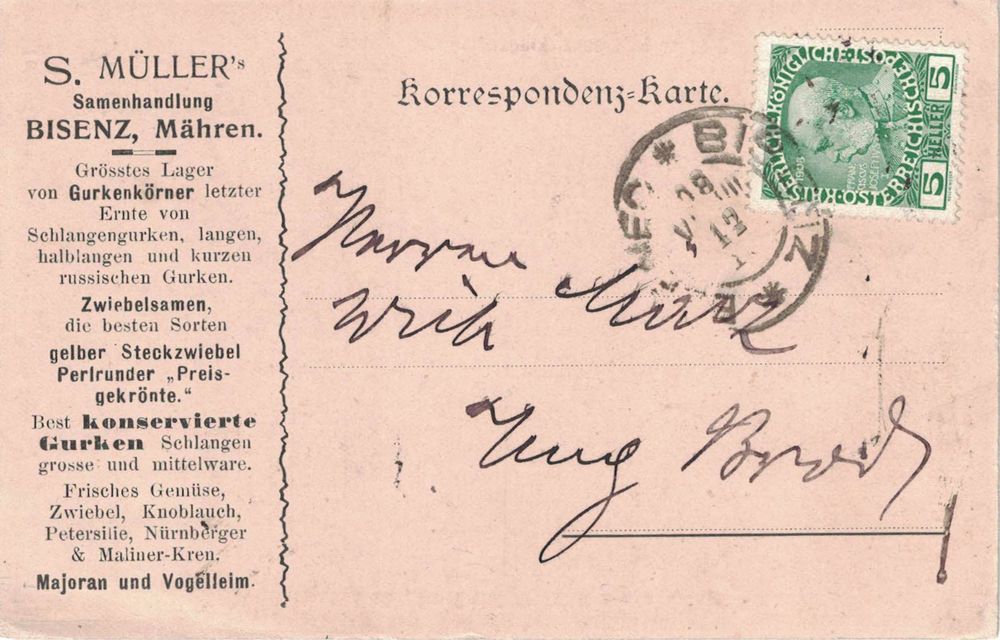 S. MÜLLER's
Samenhandlung
BISENZ, Mähren.
Grösstes Lager
von Gurkenkörner letzter
Ernte von
Schlangengurken, langen,
halblangen und kurzen
russischen Gurken.
Zwiebelsamen,
die besten Sorten
gelber Steckzwiebel
Perlrunder „Preis-
gekrönte."
Best konservierte
Gurken Schlangen
grosse und mittelware.
Frisches Gemüse,
Zwiebel, Knoblauch,
Petersilie, Nürnberger
& Maliner-Kren.
Majoran und Vogelleim.
Korrespondenz-Karte.
KAISERLICHEKÖNIGLICHE ÖSTERREICHISCHE POST
5 HELLER 5
1908
FRANZ
JOSEF I
BISENZ
VIII
12
Herrn
Ung Brod